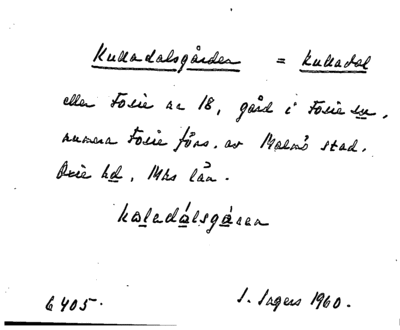 Kulladalsgården = Kulladal
eller Fosie nr 18, gård i Fosie sn,
numera Fosie förs. av Malmö stad.
Oxie hd, Mhs län.
kɷladálsgåren
6405. I. Ingers 1960.